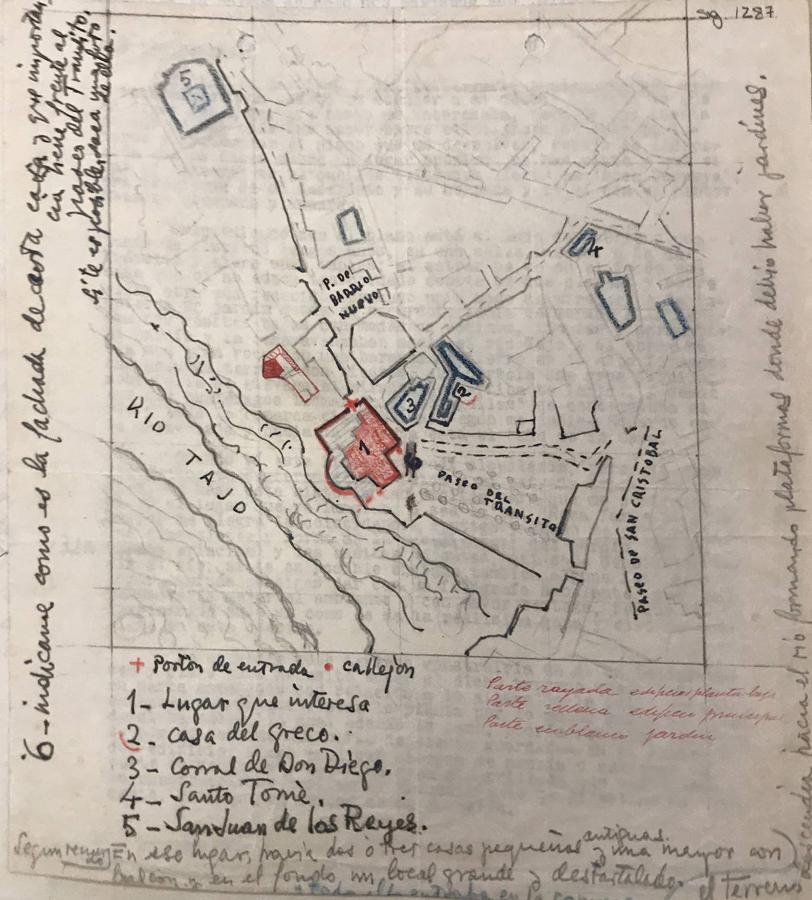 sg. 1287
6 - indicame como es la fachada de esta casa y que importan
cia tiene frente al
paseo del Transito.
Si te es posible
5
4
P. DEL
BARRIO
NUEVO
3
2
1
RIO TAJO
PASEO DEL
TRANSITO
PASEO DE SAN CRISTOBAL
+ Portón de entrada • callejón
1 - Lugar que interesa
2 - casa del greco.
3 - Corral de Don Diego.
4 - Santo Tomè.
5 - San Juan de los Reyes.
Parte rayada edificios planta baja
Parte rellena edificio principal
Parte en blanco jardin
Segun
En ese lugar, había dos o tres casas pequeñas antiguas y una mayor con
balcón y en el fondo un local grande y destartalado. el terreno
hacia el rio formando plataformas donde debio haber jardines.